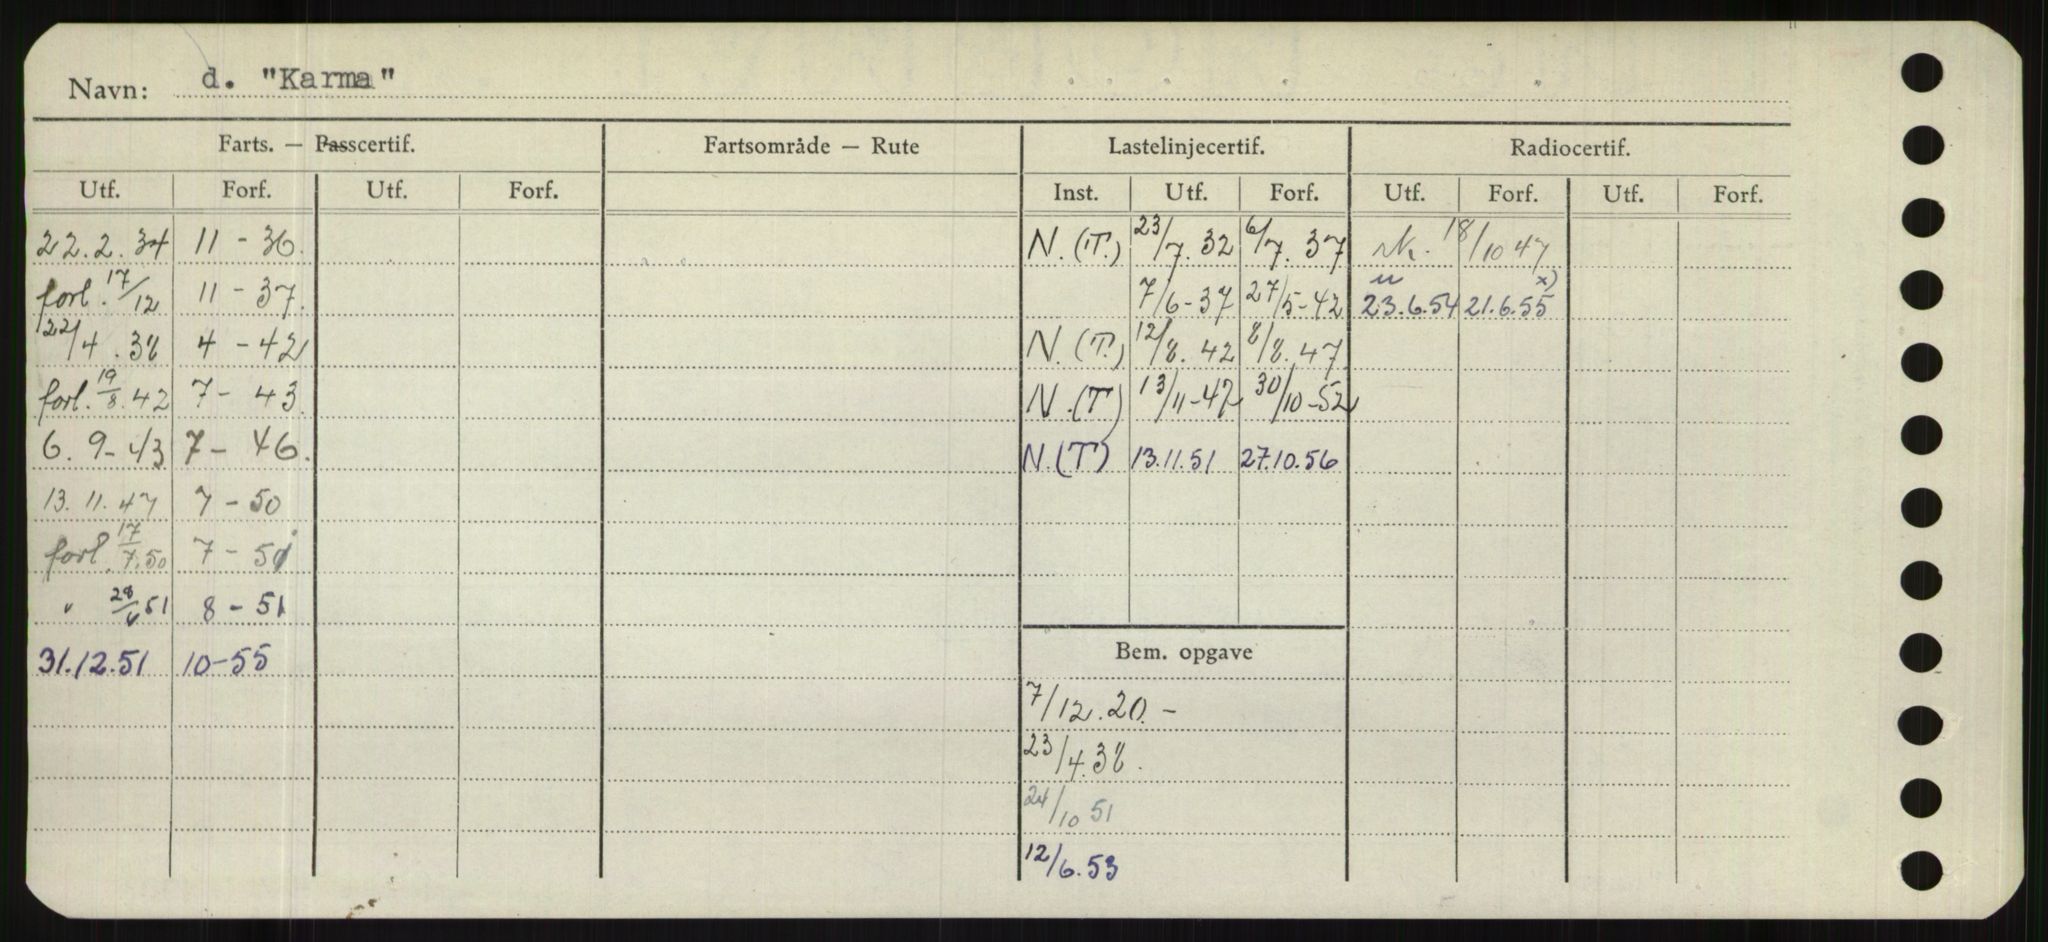 Navn: d. "Karma"
Farts. — Passcertif. Fartsområde — Rute Lastelinjecertif. Radiocertif.
Utf. Forf. Utf. Forf. Inst. Utf. Forf. Utf. Forf. Utf. Forf.
22.2.34 11 - 36. N. (T.) 23/7. 32 6/7. 37 18/10 47
forl. 17/12 11 - 37. 7/6-37 27/5-42 23.6.54 21.6.55 x)
22/4 .38 4 - 42 N. (T.) 12/8. 42 8/8. 47
forl. 19/8. 42 7 - 43. N. (T) 13/11-47 30/10-52
6. 9-43 7 - 46. N. (T) 13.11.51 27.10.56
13. 11. 47 7 - 50
forl. 17/7.50 7 - 51
" 28/6 51 8 - 51
31.12.51 10-55
Bem. opgave
7/12.20.-
23/4.38.
24/10 51
12/6.53